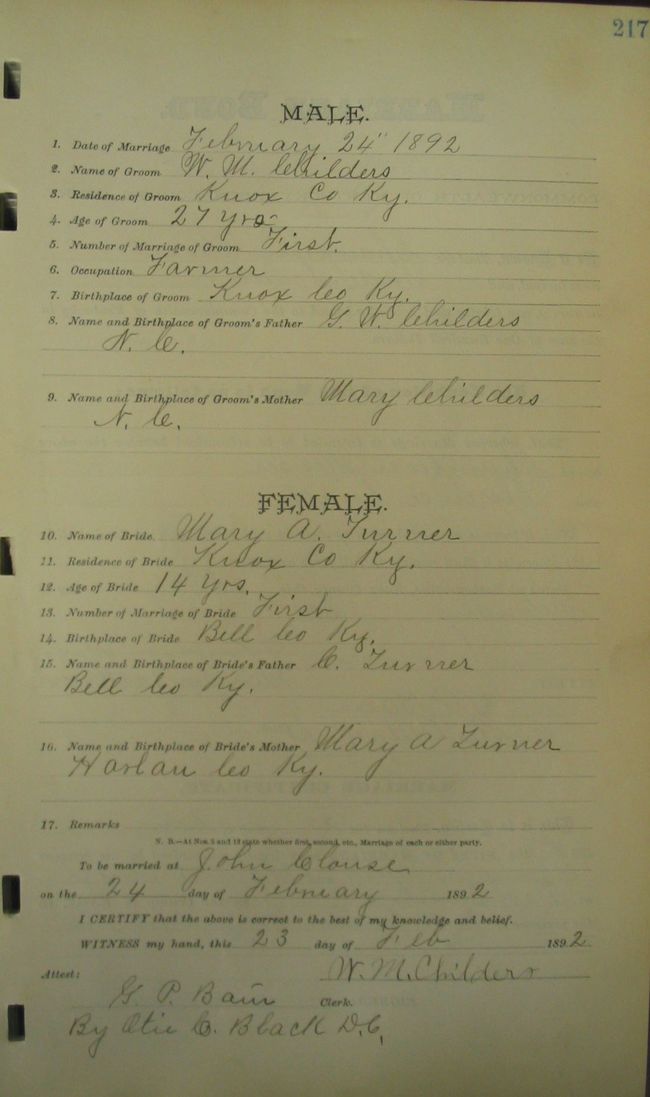 217
MALE.
1. Date of Marriage February 24" 1892
2. Name of Groom W. M. Childers
3. Residence of Groom Knox Co Ky.
4. Age of Groom 27 yrs
5. Number of Marriage of Groom First.
6. Occupation Farmer
7. Birthplace of Groom Knox Co Ky.
8. Name and Birthplace of Groom's Father G. W. Childers
N. C.
9. Name and Birthplace of Groom's Mother Mary Childers
N. C.
FEMALE.
10. Name of Bride Mary A. Turner
11. Residence of Bride Knox Co Ky.
12. Age of Bride 14 yrs.
13. Number of Marriage of Bride First
14. Birthplace of Bride Bell Co Ky.
15. Name and Birthplace of Bride's Father C. Turner
Bell Co Ky.
16. Name and Birthplace of Bride's Mother Mary A Turner
Harlan Co Ky.
17. Remarks
N. B.—At Nos. 5 and 13 state whether first, second, etc., Marriage of each or either party.
To be married at John Clouse
on the 24 day of February 1892
I CERTIFY that the above is correct to the best of my knowledge and belief.
WITNESS my hand, this 23 day of Feb 1892.
Attest: W. M. Childers
G. P. Bain Clerk.
By Otis C. Black D.C.